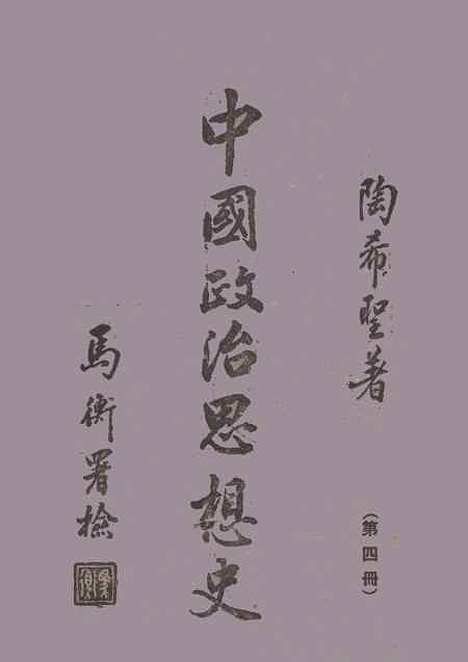 陶希聖著
（第四冊）
中國政治思想史
馬衡署檢